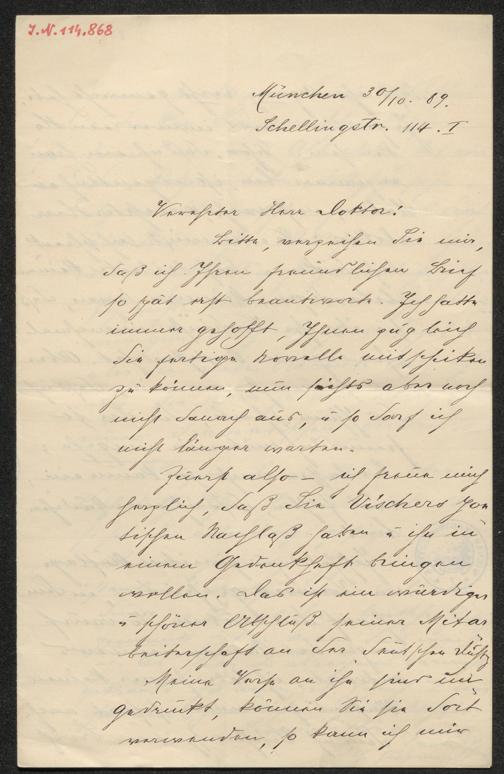 J.N. 114.868
München 30/10. 89.
Schellingstr. 114. I
Verehrter Herr Doktor!
Bitte, verzeihen Sie mir,
daß ich Ihren freundlichen Brief
so spät erst beantworte. Ich hatte
immer gehofft, Ihnen zugleich
die fertige Novelle mitschicken
zu können, nun siehts aber noch
nicht danach aus, u so darf ich
nicht länger warten.
Zuerst also – ich freue mich
herzlich, daß Sie Vischers poe
tischen Nachlaß haben u ihn in
einem Gedenkheft bringen
wollen. Das ist ein würdiger
u schöner Abschluß seiner Mitar
beiterschaft an der Deutschen
Meine Verse an ihn sind
gedruckt, können Sie sie dort
verwenden, so kann ich mir